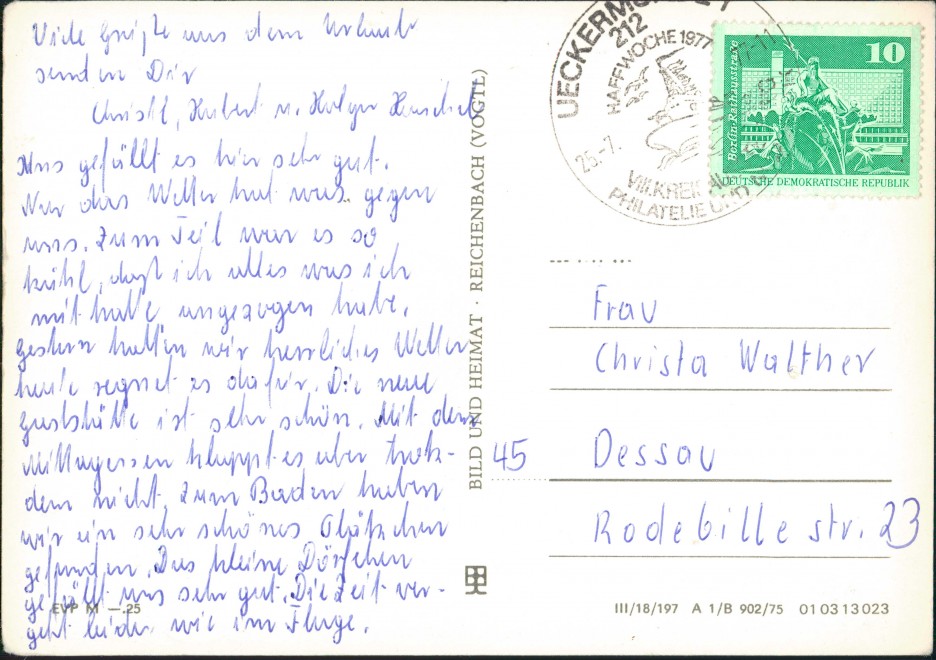 Viele Grüße aus dem Urlaub
senden Dir
Christl, Hubert u. Holger
Uns gefällt es hier sehr gut.
Nur das Wetter hat was gegen
uns. Zum Teil war es so
kühl, daß ich alles was ich
mit hatte angezogen habe.
Gestern hatten wir herrliches Wetter
heute regnet es dafür. Die neue
Gaststätte ist sehr schön. Mit dem
Mittagessen klappt es aber trotz-
dem nicht. Zum Baden haben
wir ein sehr schönes Plätzchen
gefunden. Das kleine Dörfchen
gefällt uns sehr gut. Die Zeit ver-
geht leider wie im Fluge.
EVP M —.25
BILD UND HEIMAT · REICHENBACH (VOGTL)
212
HAFFWOCHE 1977
25.-7.
VII. KREIS
PHILATELIE UND
10
Berlin-Rathausstraße
DEUTSCHE DEMOKRATISCHE REPUBLIK
Frau
Christa Walther
45 Dessau
Rodebillestr. 23
III/18/197 A 1/B 902/75 01 03 13 023